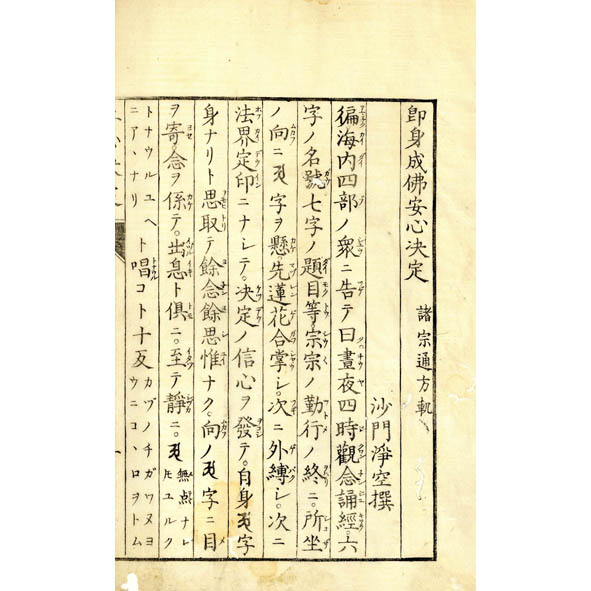 即身成佛安心决定 諸宗通方軌
沙門淨空撰
徧海内四部ノ衆ニ告テ曰晝夜四時觀念誦經六
字ノ名號七字ノ題目等宗宗ノ勤行ノ終ニ。所坐
ノ向ニ𑖀字ヲ懸先蓮花合掌シ。次ニ外縛シ。次ニ
法界定印ニナシテ。决定信心ヲ發テ。自身𑖀字
身ナリト思取テ餘念餘思惟ナク。向ノ𑖀字ニ目
ヲ寄念ヲ係テ。出息ト倶ニ。至テ靜ニ。𑖀 無点ナレ
ト唱コト十反
トナウルユヘ
ニアヽナリ
カヅノチガワヌヨ
ウニコヽロヲトム